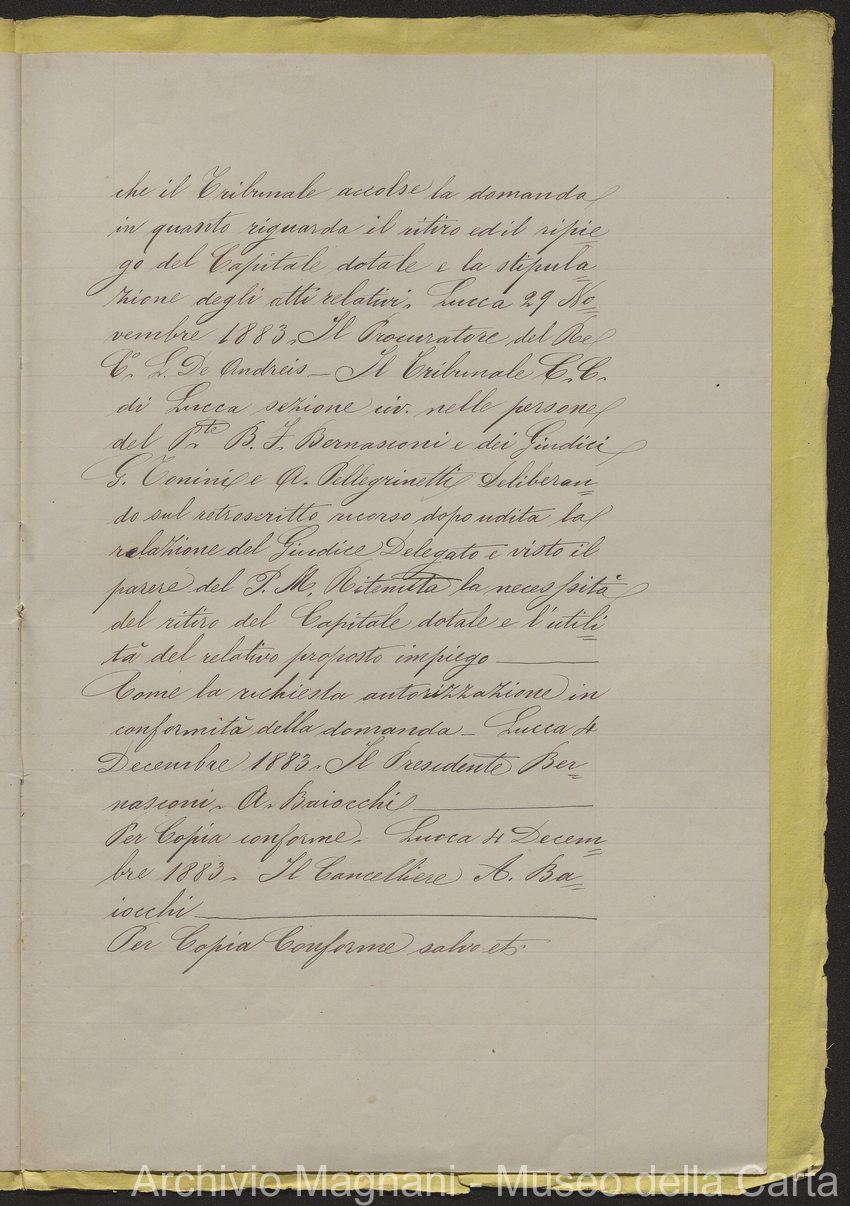 che il Tribunale accolse la domanda
in quanto riguarda il ritiro ed il ripie
go del Capitale dotale e la stipula=
zione degli atti relativi. Lucca 29 No=
vembre 1883. Il Procuratore del Re
C.º L. De Andreis – Il Tribunale C. C.
di Lucca sezione civ. nelle persone
del P.te B. F. Bernasconi e dei Giudici
G. Tonini e A. Pellegrinetti Deliberan=
do sul retroscritto ricorso dopo udita la
relazione del Giudice Delegato e visto il
parere del P. M. Ritenuta la necessità
del ritiro del Capitale dotale e l'utili=
tà del relativo proposto impiego
Come la richiesta autorizzazione in
conformità della domanda – Lucca 4
Decembre 1883. Il Presidente Ber=
nasconi. A. Baiocchi
Per Copia conforme. Lucca 4 Decem=
bre 1883. Il Cancelliere A. Ba=
iocchi
Per Copia Conforme salvo et.
Archivio Magnani - Museo della Carta